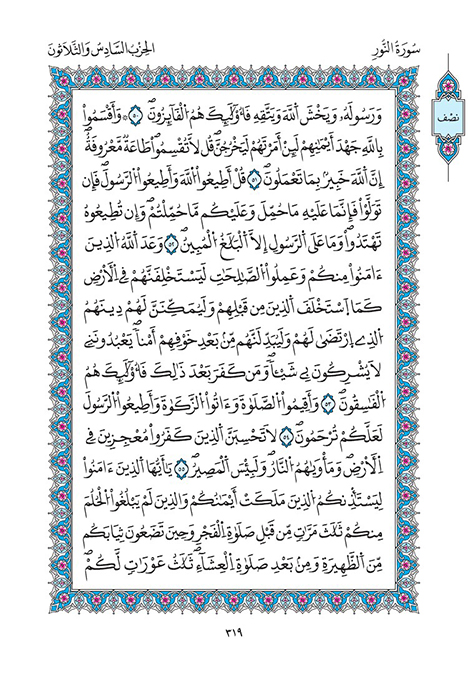 سُورَةُ النُّورِ
الحِزْبُ السَّادِسُ وَالثَّلَاثُونَ
نصف
وَرَسُولَهُۥ وَيَخْشَ اَللَّهَ وَيَتَّقِهِۦ فَأُوْلَٰٓئِكَ هُمُ اُلْفَآئِزُونَۖ ٥٠ وَأَقْسَمُواْ
بِاللَّهِ جَهْدَ أَيْمَٰنِهِمْ لَئِنْ أَمَرْتَهُمْ لَيَخْرُجُنَّۖ قُل لَّا تُقْسِمُواْۖ طَاعَةٞ مَّعْرُوفَةٌۖ
إِنَّ اَللَّهَ خَبِيرُۢ بِمَا تَعْمَلُونَۖ ٥١ قُلْ أَطِيعُواْ اُللَّهَ وَأَطِيعُواْ اُلرَّسُولَۖ فَإِن
تَوَلَّوْاْ فَإِنَّمَا عَلَيْهِ مَا حُمِّلَ وَعَلَيْكُم مَّا حُمِّلْتُمْۖ وَإِن تُطِيعُوهُ
تَهْتَدُواْۖ وَمَا عَلَى اَلرَّسُولِ إِلَّا اَلْبَلَٰغُ اُلْمُبِينُۖ ٥٢ وَعَدَ اَللَّهُ اُلذِينَ
ءَامَنُواْ مِنكُمْ وَعَمِلُواْ اُلصَّٰلِحَٰتِ لَيَسْتَخْلِفَنَّهُمْ فِے اِلْأَرْضِ
كَمَا اَسْتَخْلَفَ اَلذِينَ مِن قَبْلِهِمْ وَلَيُمَكِّنَنَّ لَهُمْ دِينَهُمُ
اُلذِے اِرْتَضَىٰ لَهُمْ وَلَيُبَدِّلَنَّهُم مِّنۢ بَعْدِ خَوْفِهِمْ أَمْناٗۖ يَعْبُدُونَنِے
لَا يُشْرِكُونَ بِے شَيْـٔاٗۖ وَمَن كَفَرَ بَعْدَ ذَٰلِكَ فَأُوْلَٰٓئِكَ هُمُ
اُلْفَٰسِقُونَۖ ٥٣ وَأَقِيمُواْ اُلصَّلَوٰةَ وَءَاتُواْ اُلزَّكَوٰةَ وَأَطِيعُواْ اُلرَّسُولَ
لَعَلَّكُمْ تُرْحَمُونَۖ ٥٤ لَا تَحْسِبَنَّ اَلذِينَ كَفَرُواْ مُعْجِزِينَ فِے
اِلْأَرْضِۖ وَمَأْوَىٰهُمُ اُلنَّارُۖ وَلَبِئْسَ اَلْمَصِيرُۖ ٥٥ يَٰٓأَيُّهَا اَلذِينَ ءَامَنُواْ
لِيَسْتَـْٔذِنكُمُ اُلذِينَ مَلَكَتْ أَيْمَٰنُكُمْ وَالذِينَ لَمْ يَبْلُغُواْ اُلْحُلُمَ
مِنكُمْ ثَلَٰثَ مَرَّٰتٖ مِّن قَبْلِ صَلَوٰةِ اِلْفَجْرِ وَحِينَ تَضَعُونَ ثِيَابَكُم
مِّنَ اَلظَّهِيرَةِ وَمِنۢ بَعْدِ صَلَوٰةِ اِلْعِشَآءِۖ ثَلَٰثُ عَوْرَٰتٖ لَّكُمْۖ
٣١٩